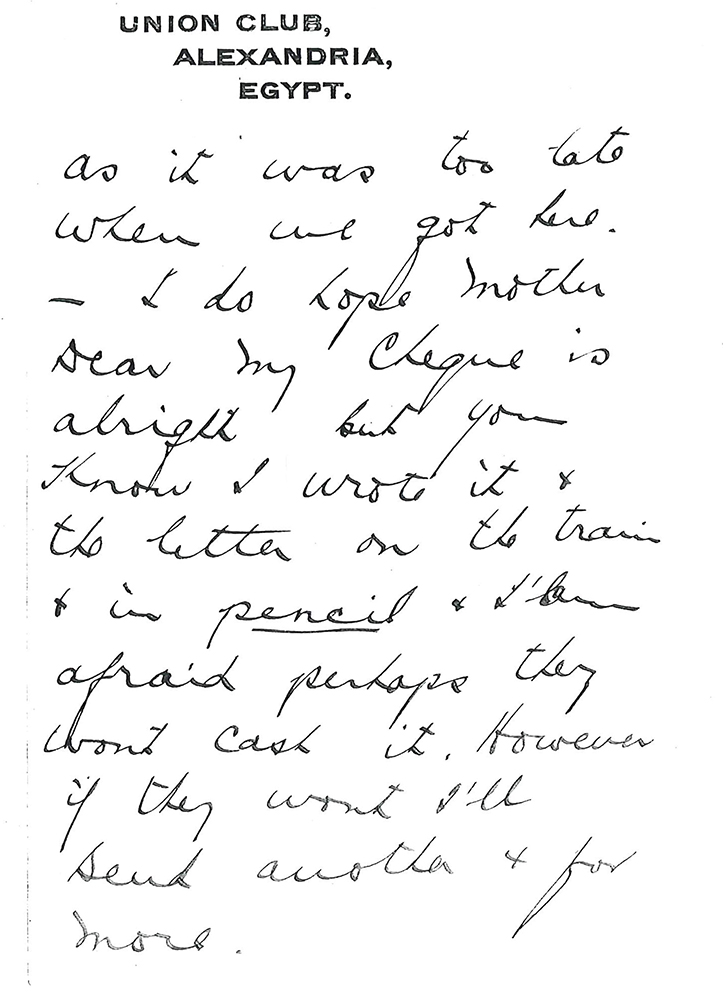 UNION CLUB,
ALEXANDRIA,
EGYPT.
as it was too late
when we got here.
— I do hope Mother
Dear my Cheque is
alright but you
know I wrote it &
the letter on the train
& in pencil & I'am
afraid perhaps they
wont cash it. However
if they wont I'll
send another & for
more.